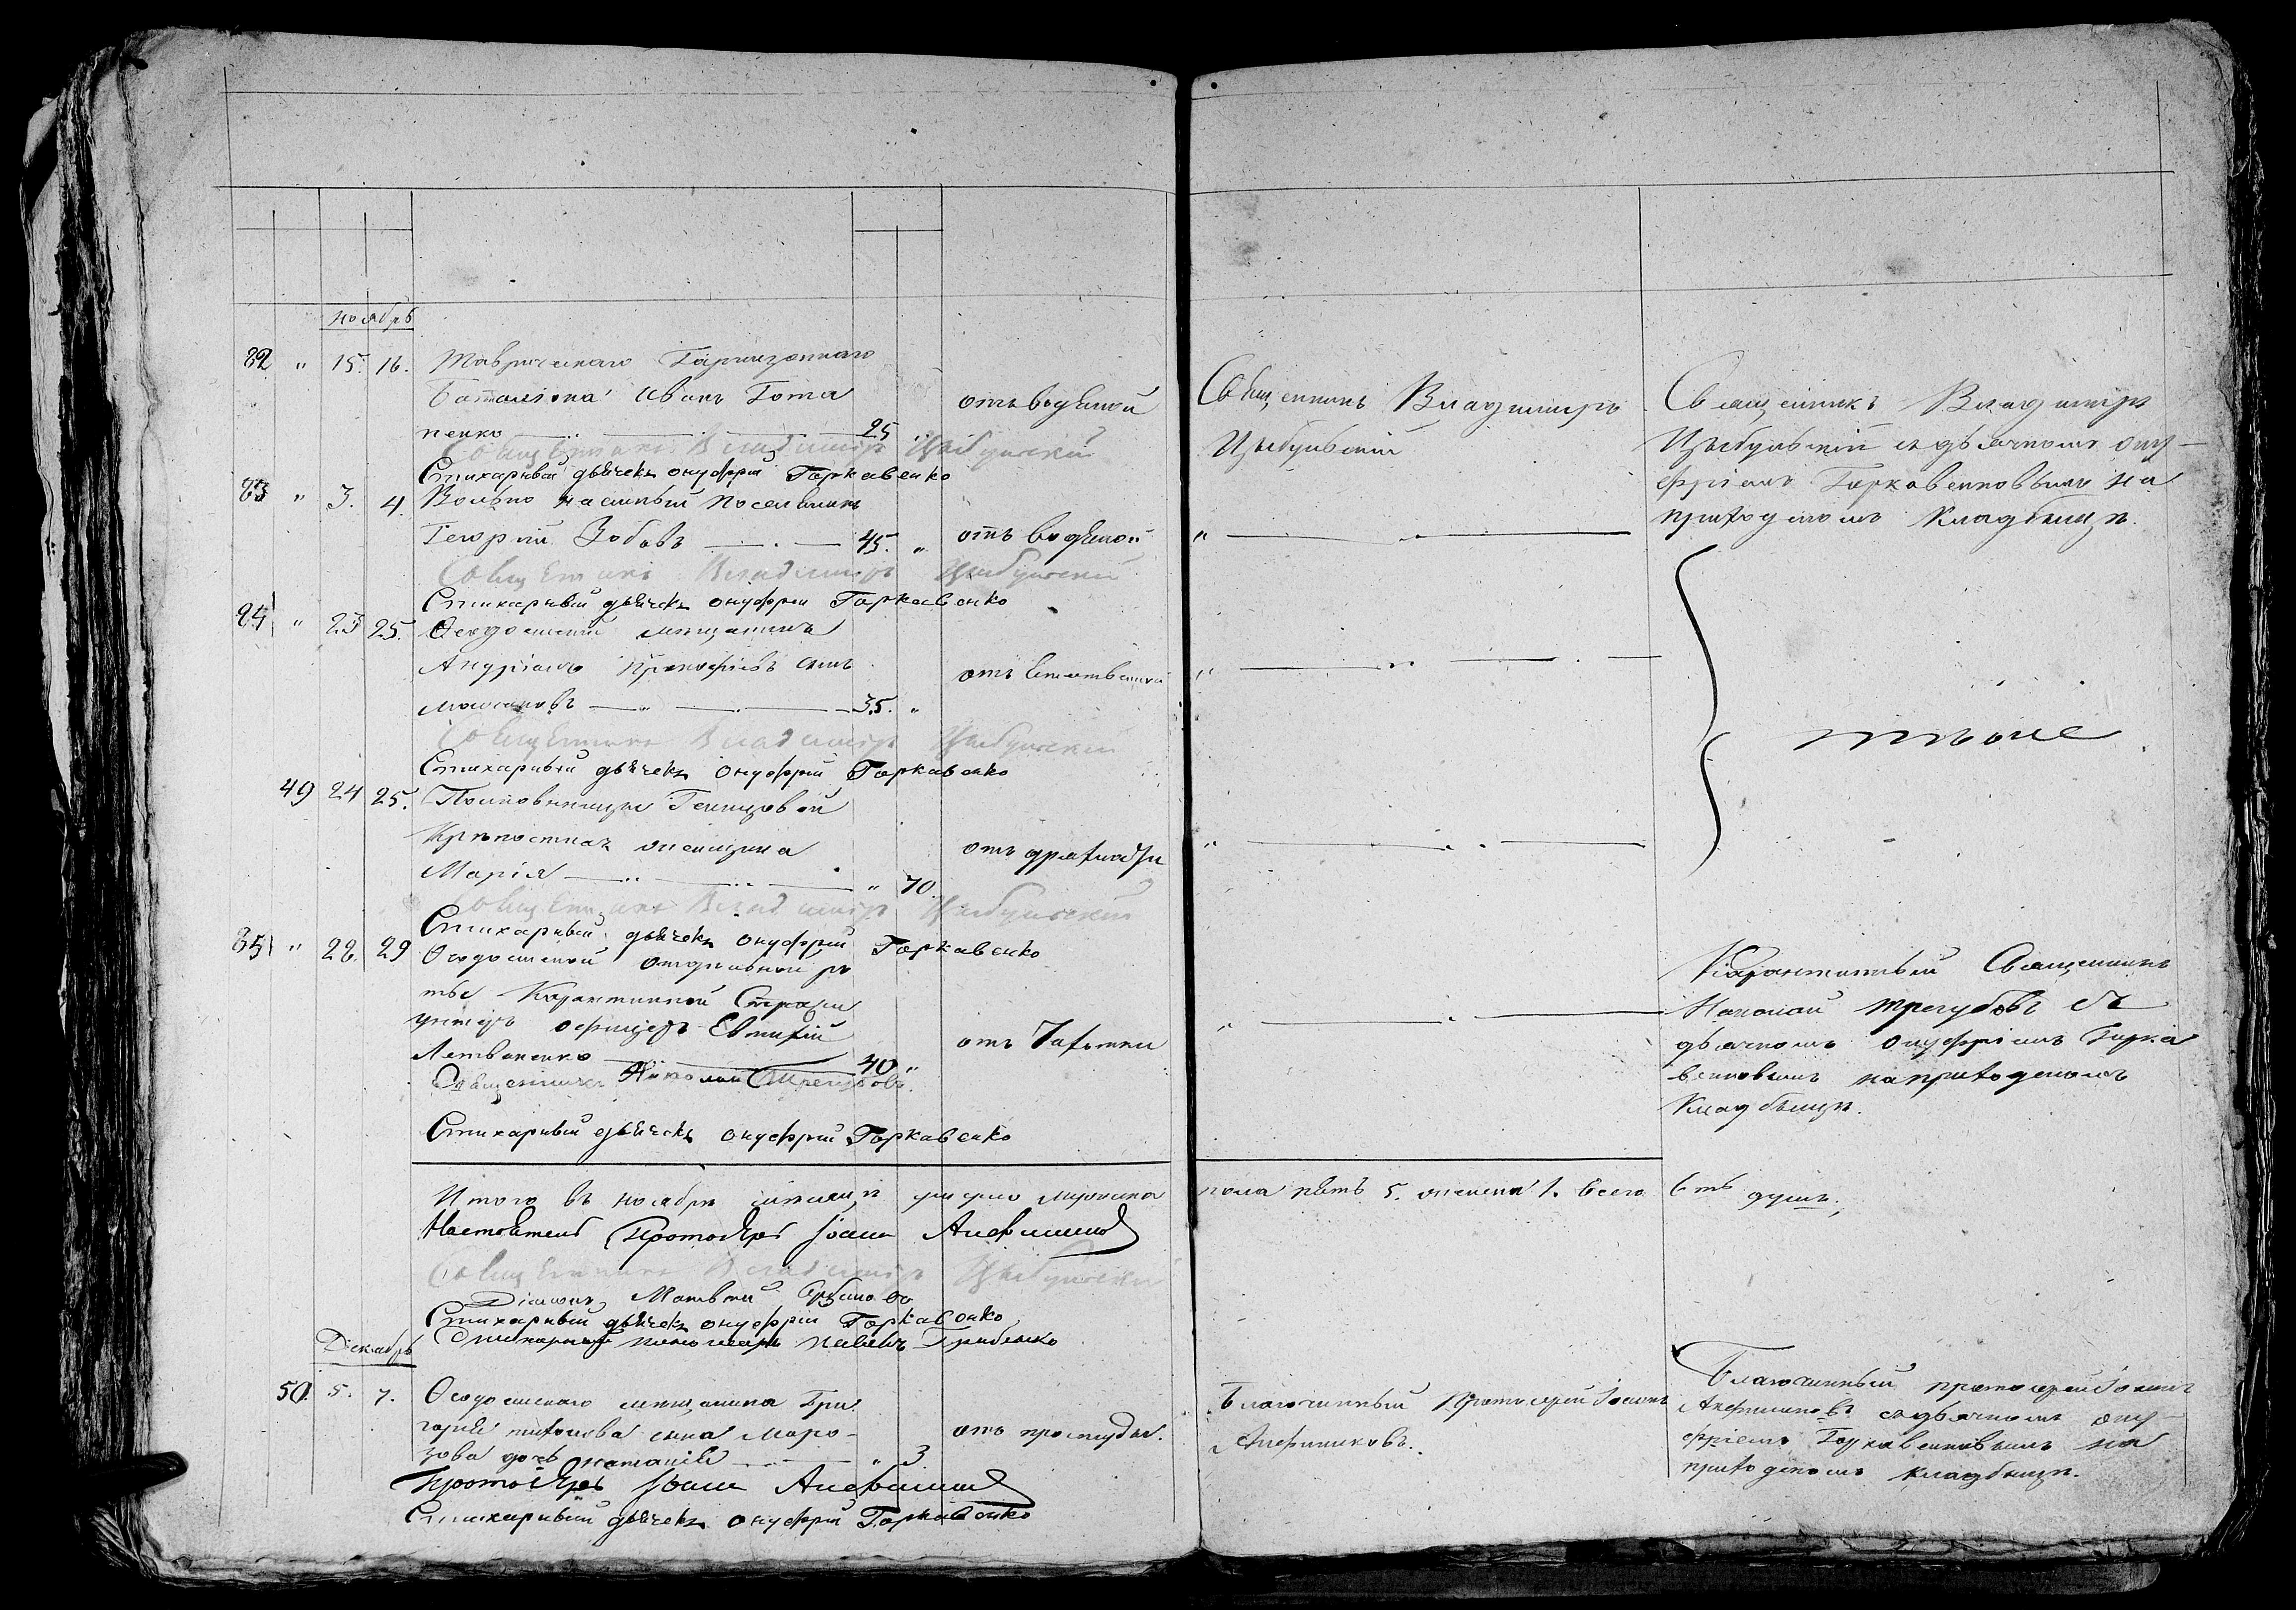 Ноябрь
82 " 15. 16. Таврическаго Гарнизоннаго
Баталіона Иванъ Гота
пенко 25 "
отъ водяной
Священникъ Владимиръ Цыбульскій
Стихарный дьячекъ Онуфрій Горкавенко
83 " 3. 4. Вольно насмный поселянинъ
Георгій Зобовъ 45. "
отъ водяной
Священникъ Владимиръ Цыбульскій
Стихарный дьячекъ Онуфрій Горкавенко
84 " 23 25. Ѳеодосійскій мѣщанинъ
Андріанъ Прокофіевъ сынъ
35. "
отъ
Священникъ Владимиръ Цыбульскій
Стихарный дьячекъ Онуфрій Горкавенко
49 24 25. Полковницы
Крѣпостная женщина
Марія " 70.
отъ
Священникъ Владимиръ Цыбульскій
Стихарный дьячекъ Онуфрій Горкавенко
85 " 28. 29 Ѳеодосійской отдѣльной ро
ты Карантинной Стражи
унтеръ офицеръ Евтихій
Летвиненко 40 "
отъ Чахотки
Священникъ Николай Трегубовъ.
Стихарный дьячекъ Онуфрій Горкавенко
Итого въ ноябрѣ мѣсяцѣ умерло мужеска
Настоятель Протоіерей Іоаннъ
Священникъ Владимиръ Цыбульскій
Діаконъ Матвѣй
Стихарный дьячекъ Онуфрій Горкавенко
Стихарный пономарь Павелъ
Декабрь
50. 5. 7. Ѳеодосійскаго мѣщанина Гри
горія Тихонова сына Моро-
зова дочь Наталія " 3
отъ простуды.
Протоіерей Іоаннъ
Стихарный дьячекъ Онуфрій Горкавенко
Священникъ Владимиръ
Цыбульскій
"
"
"
"
пола пять 5. женска 1. всего
Благочинный Протоіерей Іоаннъ
Священникъ Владимиръ
Цыбульскій съ дьячкомъ Ону-
фріемъ Горкавенковымъ на
приходскомъ Кладбищѣ.
тѣже
Карантинный Священникъ
Николай Трегубовъ съ
дьячкомъ Онуфріемъ Горка
венковымъ на приходскомъ
Кладбищѣ.
6ть душъ.
Благочинный протоіерей Іоаннъ
съ дьячкомъ Ону-
фріемъ Горкавенковымъ на
приходскомъ кладбищѣ.